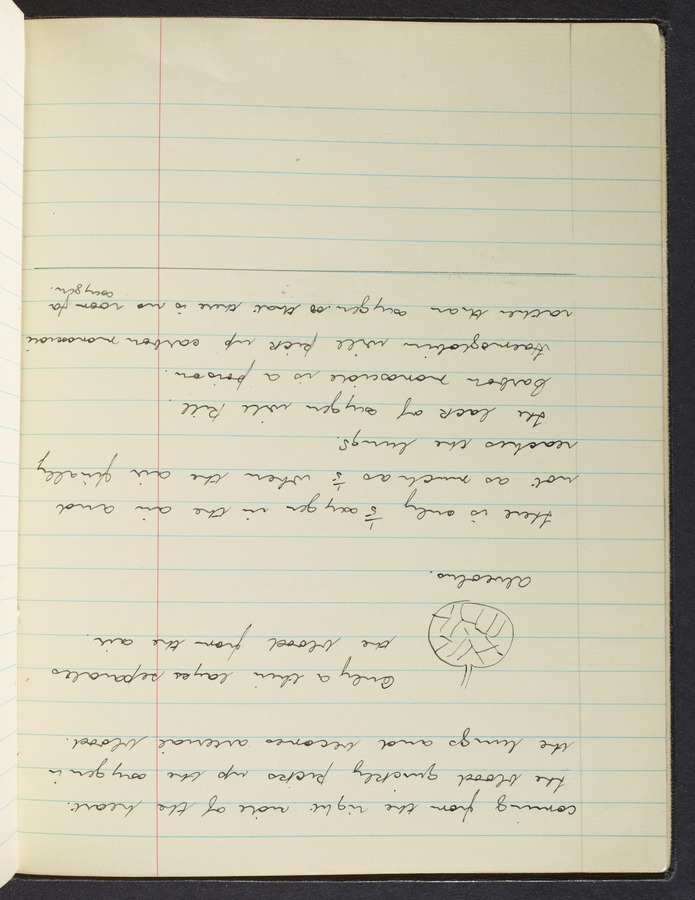 coming from the right side of the heart.
the blood quickly picks up the oxygen in
the lungs and becomes arterial blood.
Only a thin layer separates
the blood from the air.
Alveolus.
There is only 1/5 oxygen in the air and
not as much as 1/5 when the air finally
reaches the lungs.
the lack of oxygen will kill.
Carbon monoxide is a poison.
Haemoglobin will pick up carbon monoxide
rather than oxygen so that there is no room for
oxygen.